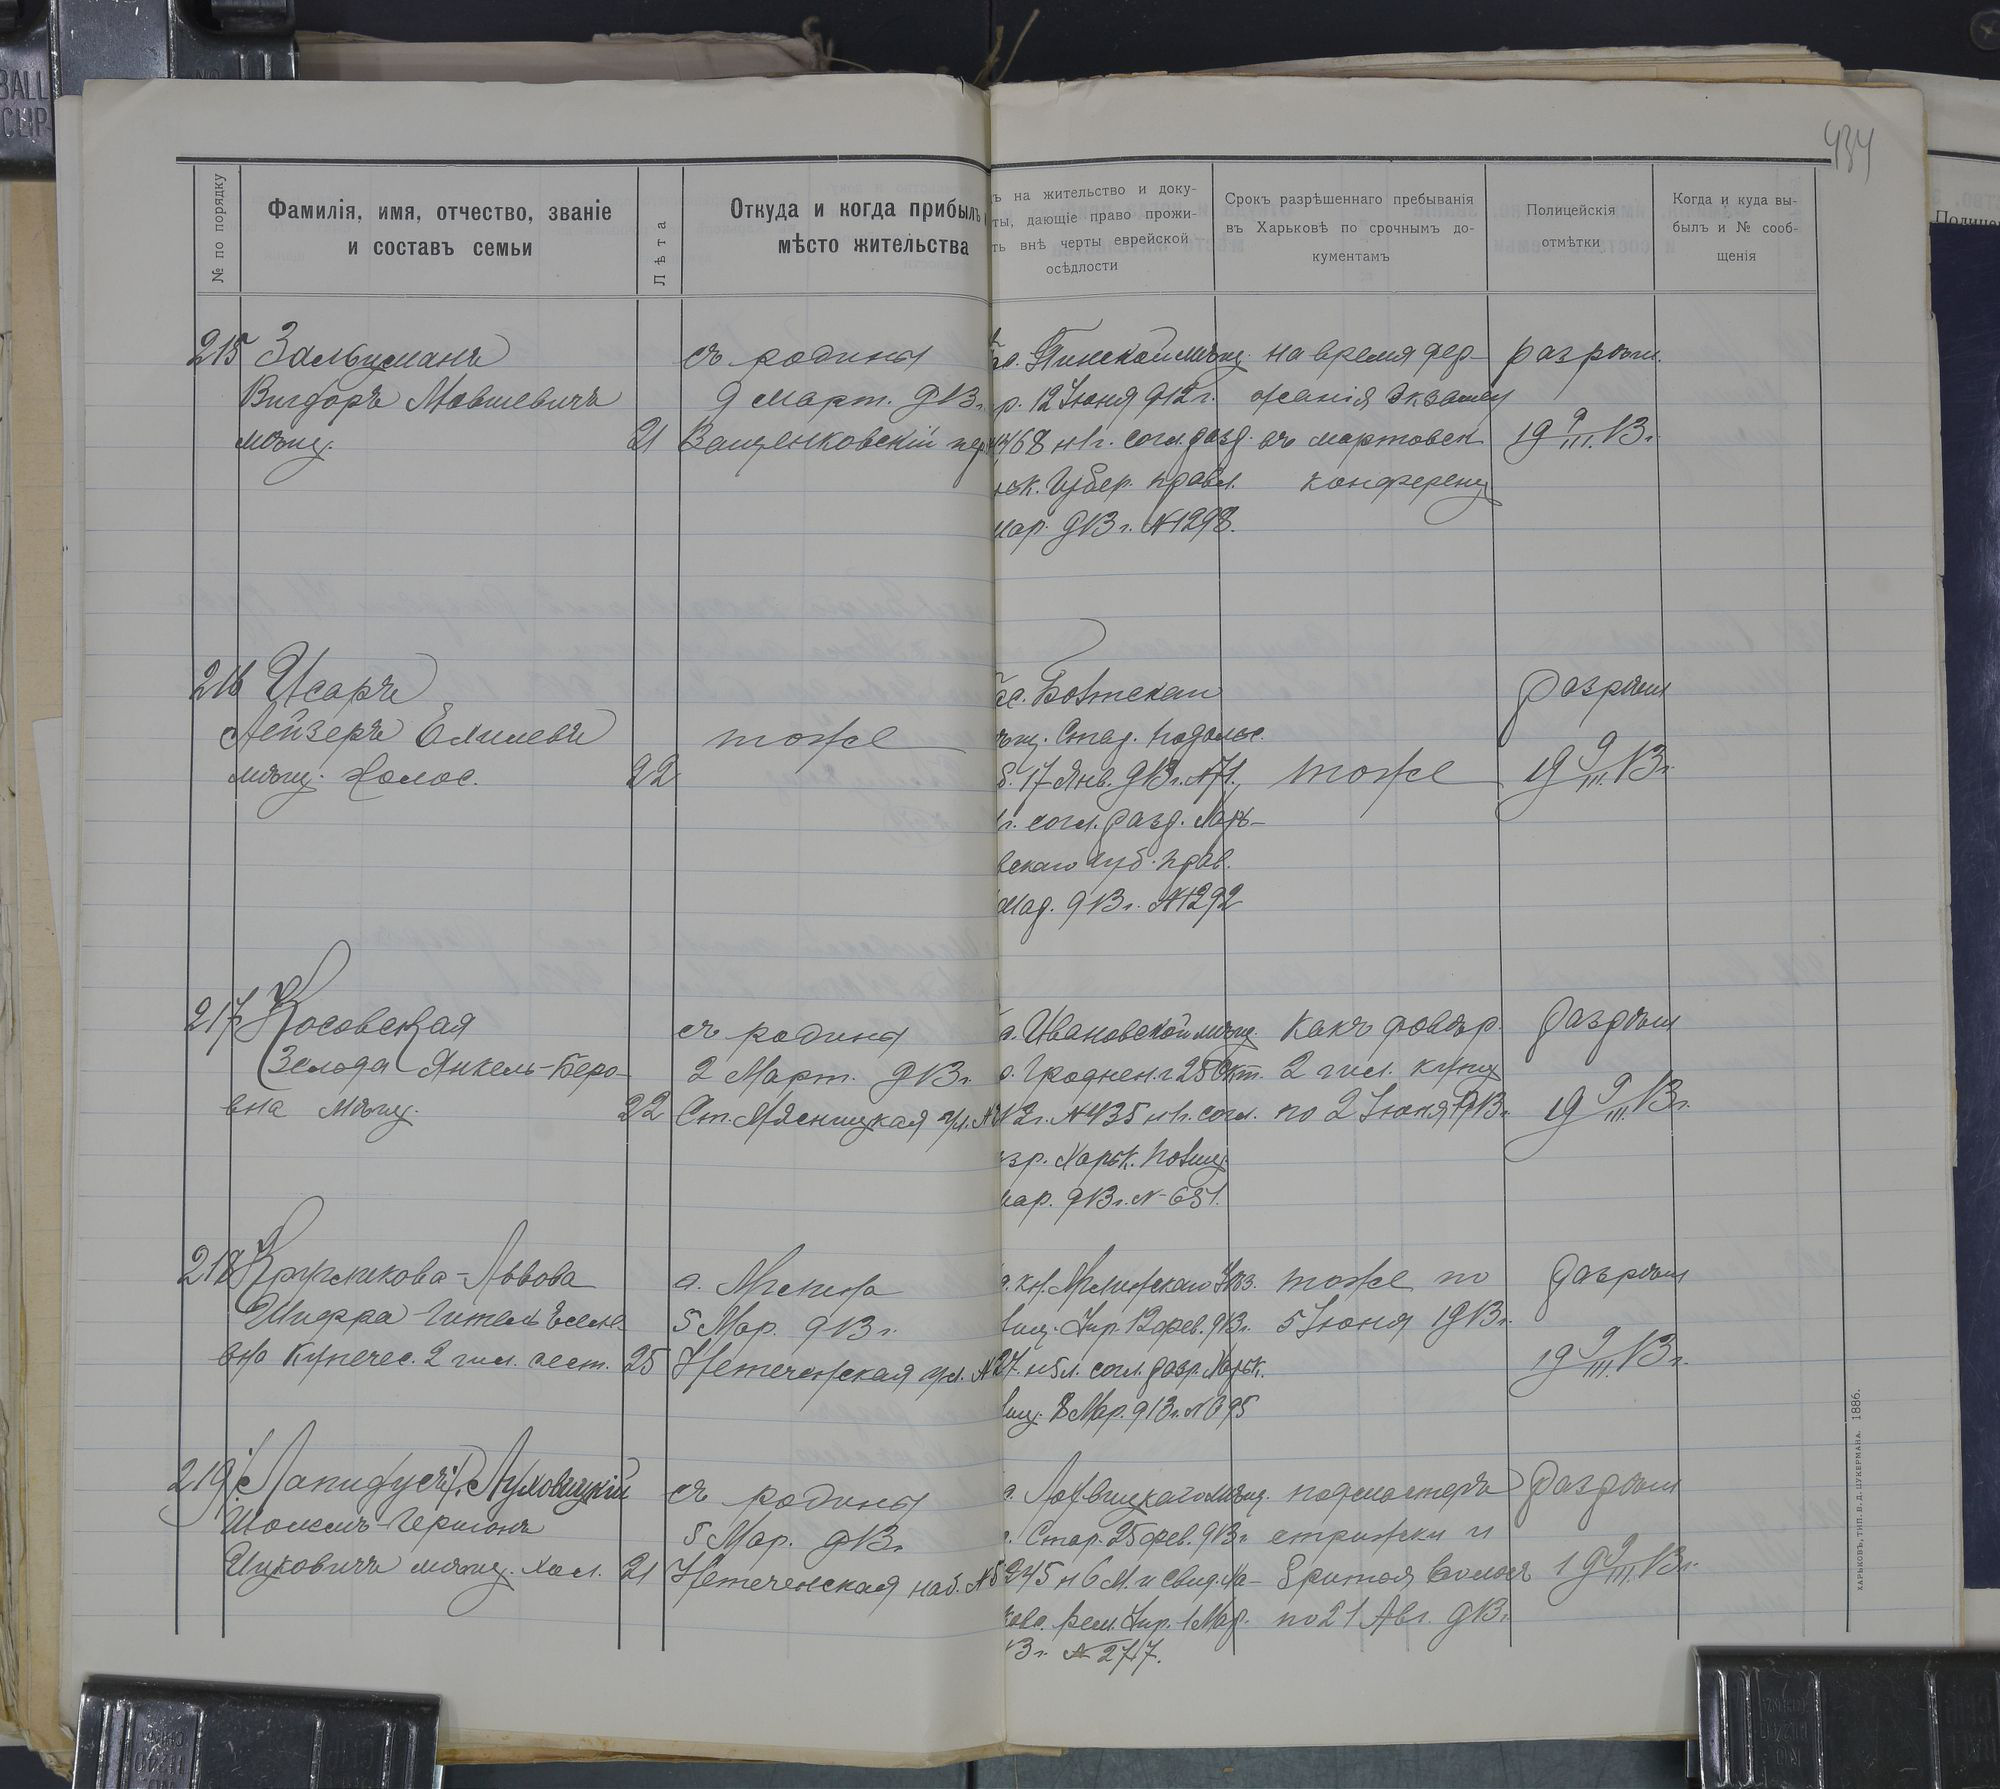 434
№ по порядку
Фамилія, имя, отчество, званіе
и составъ семьи
Лѣта
Откуда и когда прибылъ
мѣсто жительства
ъ на жительство и доку-
ты, дающіе право прожи-
ть внѣ черты еврейской
осѣдлости
Срокъ разрѣшеннаго пребыванія
въ Харьковѣ по срочнымъ до-
кументамъ
Полицейскія
отмѣтки
Когда и куда вы-
былъ и № сооб-
щенія
215 Зальцманъ
Вигдоръ Мовшевичъ
мѣщ. 21
съ родины
9 март. 913 г.
Ващенковскій пер.
Пинской мѣщ.
р. 12 Іюня 912 г.
468 н 1 г. согл. разр.
ск. Губер. правл.
мар. 913 г. № 1298.
на время дер-
жанія экзамен
въ мартовск
конференц
разрѣш.
19 9/III 13 г.
216 Исаръ
Лейзеръ
мѣщ. холос. 22
тоже
мѣщ. Стар. Подольс.
б. 17 Янв. 913 г. № 71,
1 г. согл. разр. Харь-
вскаго Губ. прав.
мар. 913 г. № 1292
тоже
разрѣш
19 9/III 13 г.
217 Косовская
Зелода Янкель-Беро-
вна мѣщ. 22
съ родины
2 Март. 913 г.
Ст. Мясницкая ул. №
Ивановской мѣщ.
р. Гроднен. г. 25 Окт.
12 г. № 435 н 1 г. согл.
азр. Харьк. Полиц.
мар. 913 г. № 651.
Какъ довѣр.
2 гил. купц
по 2 Іюня 1913 г.
разрѣш
19 9/III 13 г.
218 Кружликова-Львова
Шифра-Гитель
вна купечес. 2 гил. сест. 25
5 Мар. 913 г.
Нетеченская ул. №
лиц. Упр. 12 фев. 913 г.
27 н 5 л. согл. разр. Харьк.
лиц. 8 Мар. 913 г. № 695
тоже по
5 Іюня 1913 г.
разрѣш
19 9/III 13 г.
219 Лапидусъ Луховицкій
Шолемъ-Гершонъ
Ицковичъ мѣщ. хол. 21
съ родины
5 Мар. 913 г.
Нетеченская наб. № 5
мѣщ.
Стар. 25 фев. 913 г.
245 н 6 м. и свид. Ха-
ковс. Рем. Упр. 1 Мар.
13 г. № 2717.
подмастеръ
стрижки и
бритья волосъ
по 21 Авг. 913 г.
разрѣш
19 9/III 13 г.
ХАРЬКОВЪ, ТИП. В. Д. ЦУКЕРМАНА. 1886.